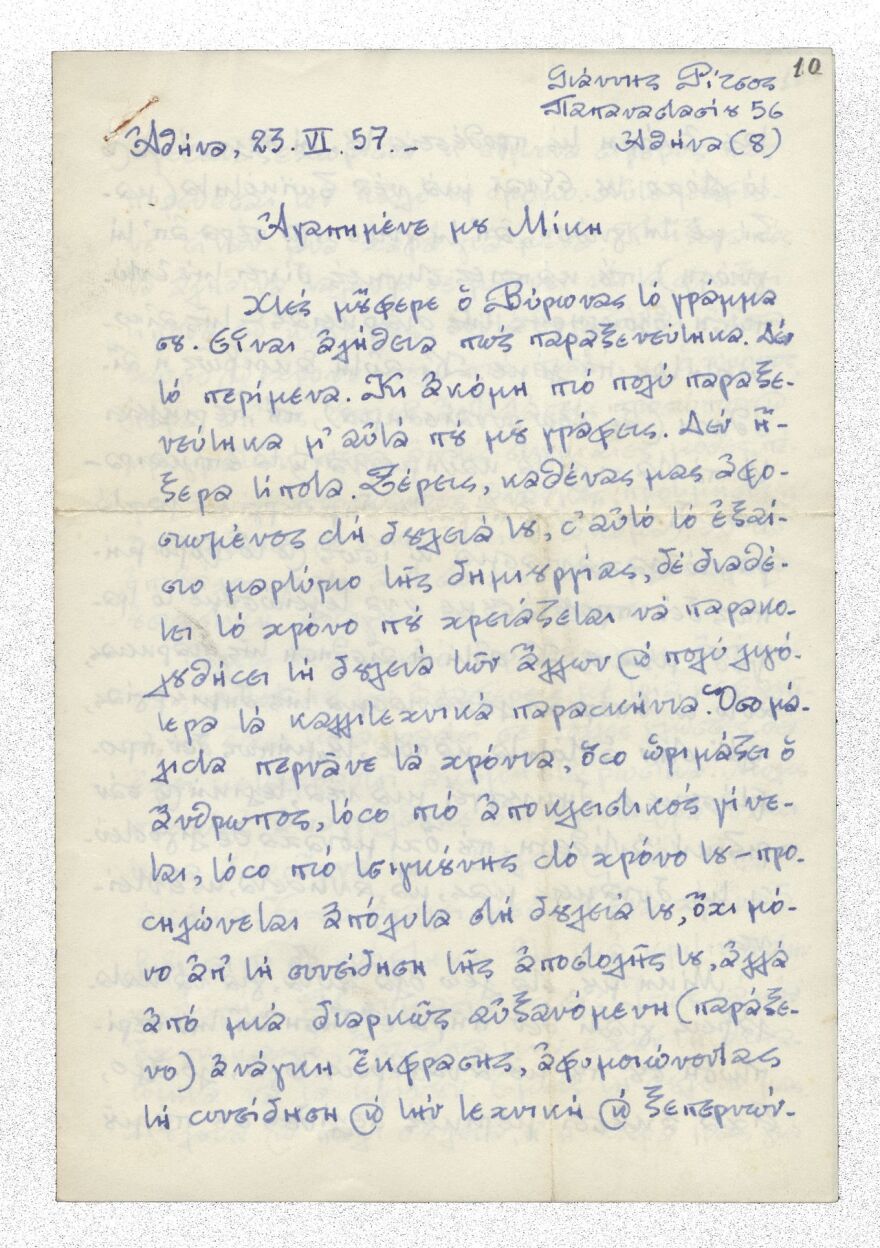 10
Γιάννης Ρίτσος
Παπαναστασίȣ 56
Ἀθήνα (8)
Ἀθήνα, 23. VI. 57. –
Ἀγαπημένε μȣ Μίκη
Χτές μȣ̓φερε ὁ Βύρωνας τό γράμμα
σȣ. Εἶναι ἀλήθεια πώς παραξενεύτηκα. Δέν
τό περίμενα. Κι ἀκόμη πιο πολύ παραξε-
νεύτηκα μ' αὐτά πȣ́ μȣ͂ γράφεις. Δέν ἤ-
ξερα τίποτα. Ξέρεις, καθένας μας ἀφο-
σιωμένος στή δȣλειά τȣ, σ' αὐτό τό ἐξαί-
σιο μαρτύριο τῆς δημιȣργίας, δέ διαθέ-
τει τό χρόνο πȣ́ χρειάζεται νά παρακο-
λȣθήσει τή δȣλειά τῶν ἄλλων ϗ πολύ λιγό-
τερα τά καλλιτεχνικά παρασκήνια. Ὅσο μά-
λιστα περνᾶνε τά χρόνια, ὅσο ὡριμάζει ὁ
ἄνθρωπος, τόσο πιό ἀποκλειστικός γίνε-
ται, τόσο πιό τσιγκȣ́νης στό χρόνο τȣ – προ-
σηλώνεται ἀπόλυτα στή δȣλειά τȣ, ὄχι μό-
νο ἀπ' τή συνείδηση τῆς ἀποστολῆς τȣ, ἀλλά
ἀπό μιά διαρκῶς αὐξανόμενη (παράξε-
νο) ἀνάγκη ἔκφρασης, ἀφομοιώνοντας
τή συνείδηση ϗ τήν τεχνική ϗ ξεπερνών-